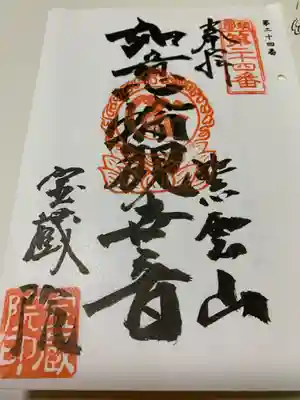 第二十四番
奉拝
第二十四番
紫雲山
如意輪観世音
宝蔵院
宝蔵院印